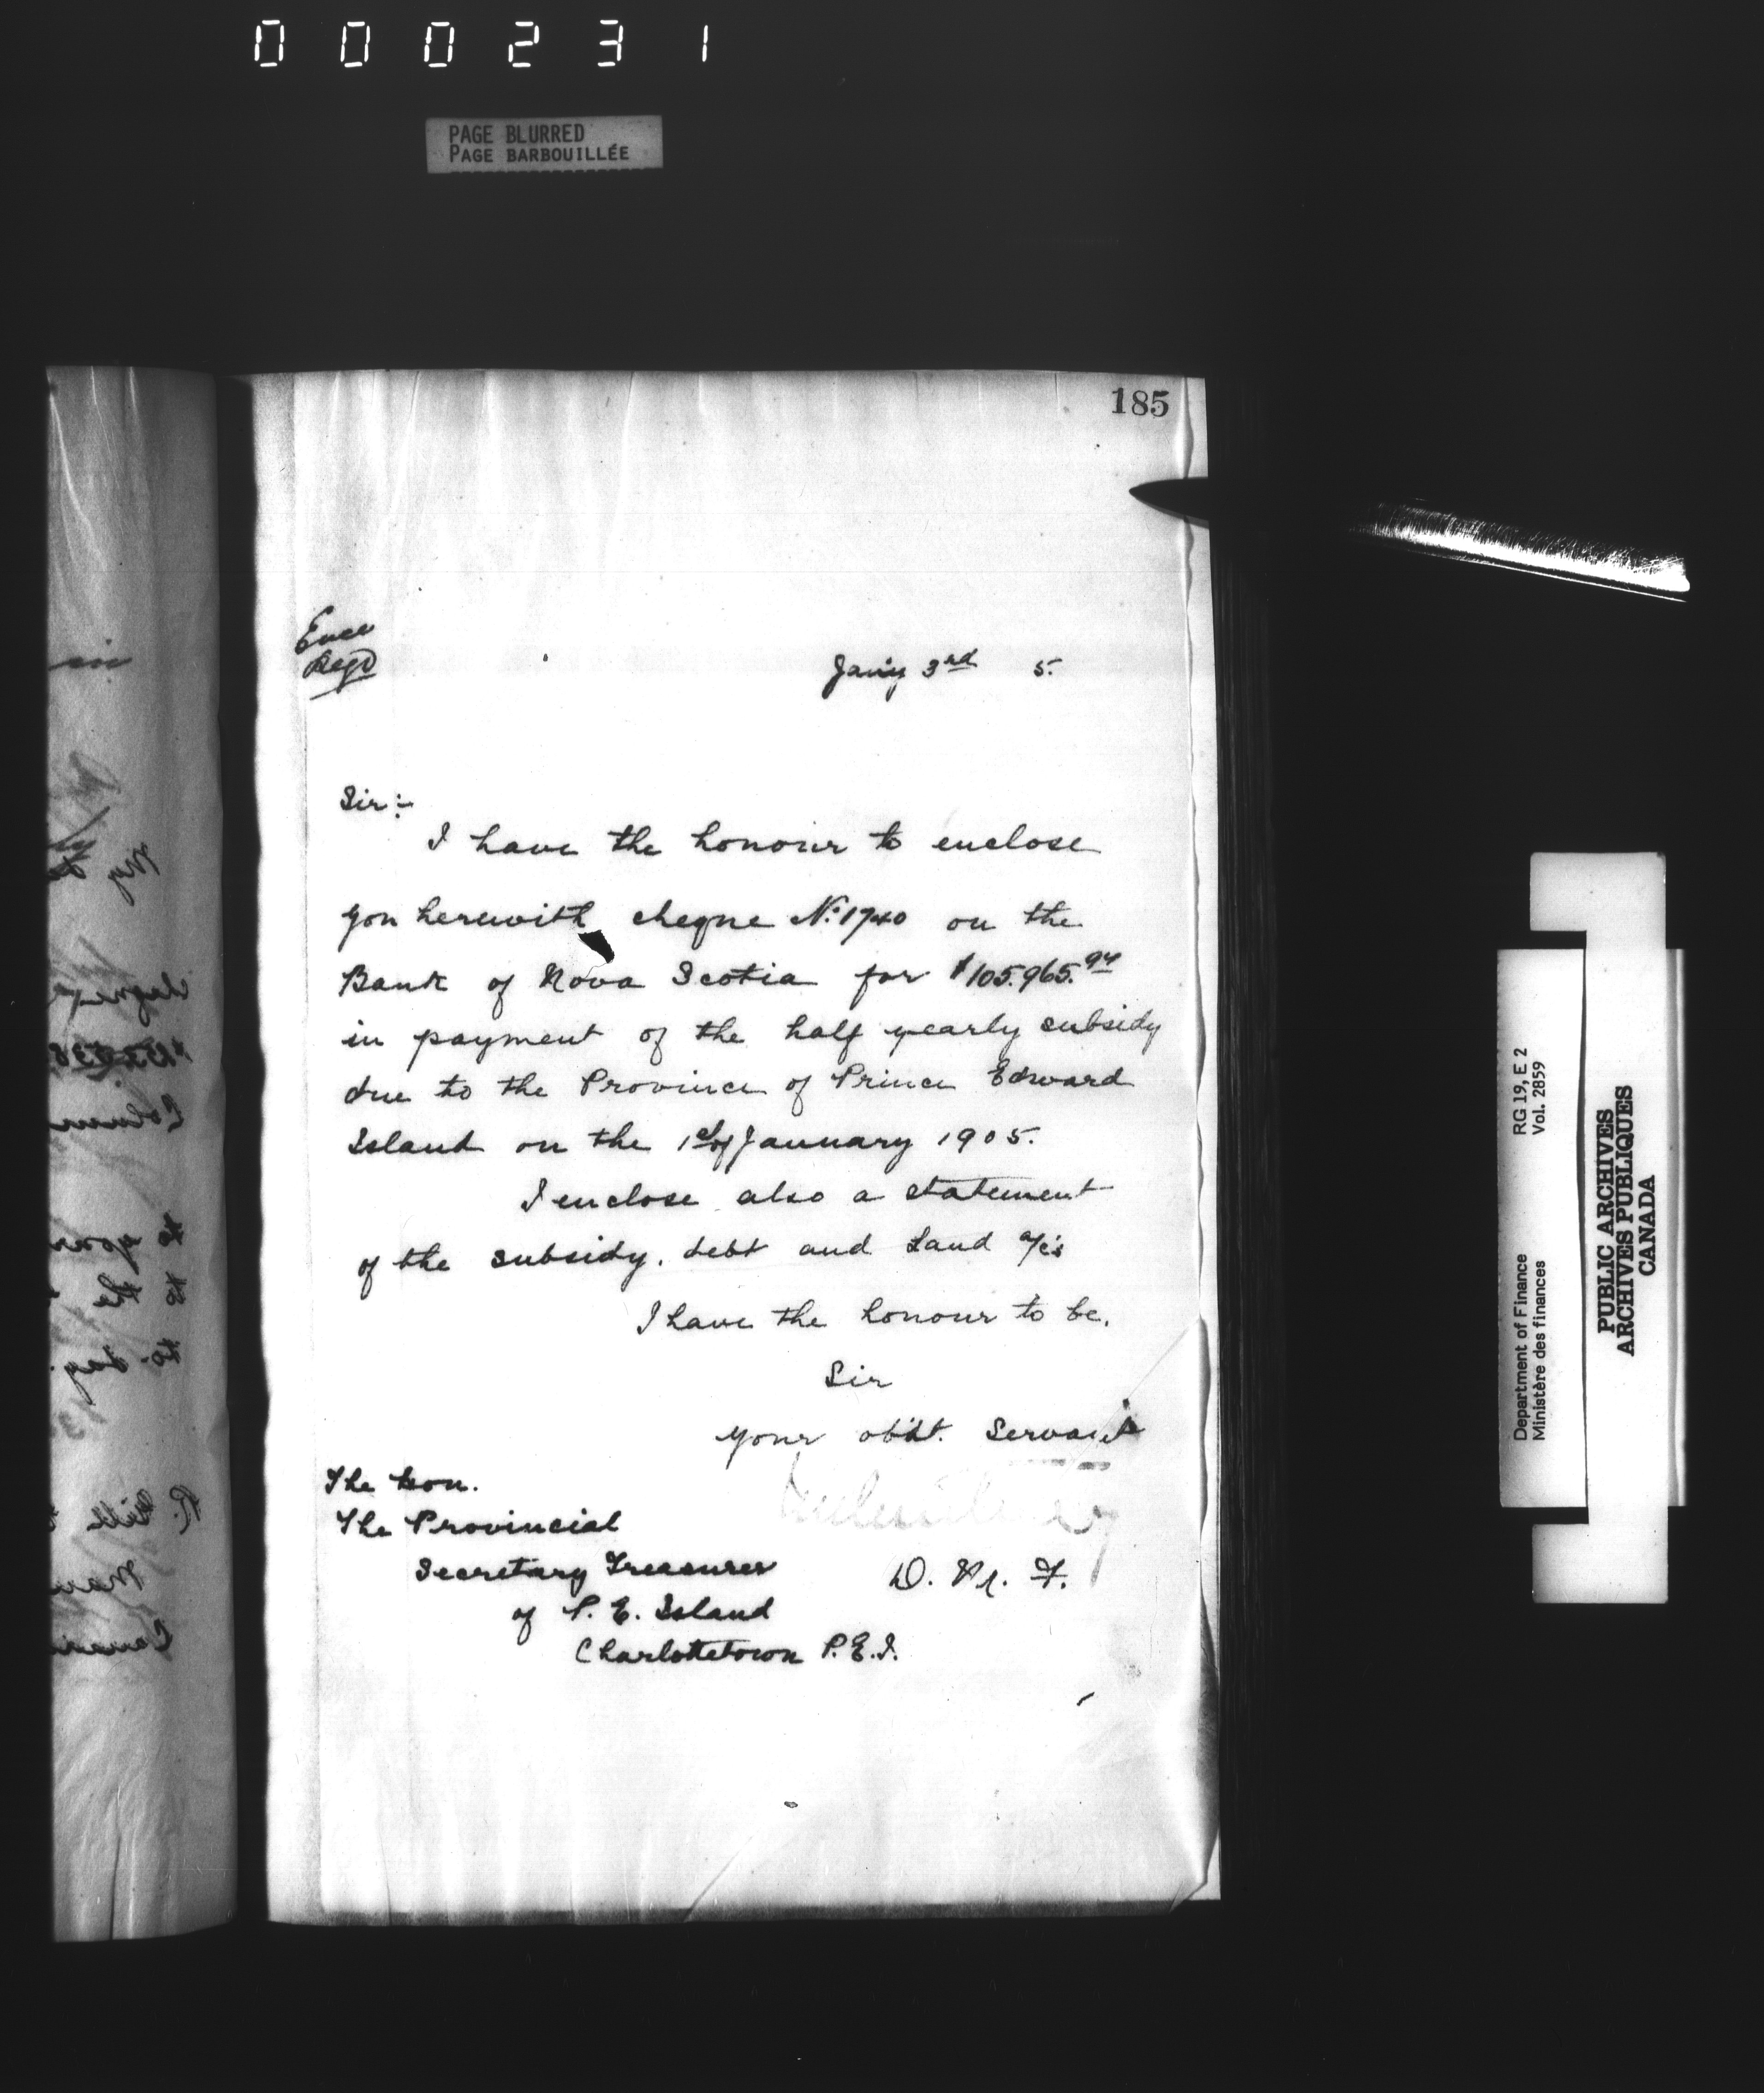 000231
PAGE BLURRED
PAGE BARBOUILLÉE
185
Encl
Regd
Jan'y 3rd 5.
Sir:-
I have the honour to enclose
you herewith cheque No. 1740 on the
Bank of Nova Scotia for $105.965.94
in payment of the half yearly subsidy
due to the Province of Prince Edward
Island on the 1st of January 1905.
I enclose also a statement
of the subsidy, debt and Land a/cs
I have the honour to be,
Sir
your obdt. Servant
D. M. F.
The Hon.
The Provincial
Secretary Treasurer
of P. E. Island
Charlottetown P.E.I.
Department of Finance RG 19, E 2
Ministère des finances Vol. 2859
PUBLIC ARCHIVES
ARCHIVES PUBLIQUES
CANADA